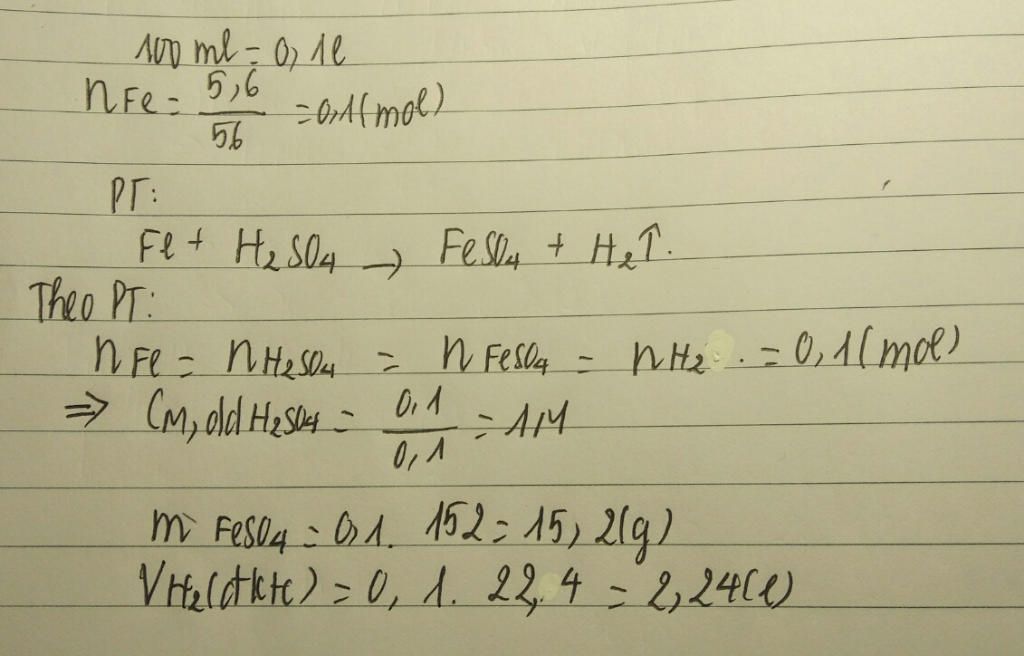 100 ml = 0,1l
nFe = 5,6/56 = 0,1(mol)
PT:
Fe + H₂SO₄ → FeSO₄ + H₂↑.
Theo PT:
nFe = nH₂SO₄ = nFeSO₄ = nH₂ . = 0,1(mol)
⇒ CM, ddH₂SO₄ = 0,1/0,1 = 1M
m FeSO₄ = 0,1. 152 = 15,2(g)
VH₂(đktc) = 0,1. 22,4 = 2,24(l)